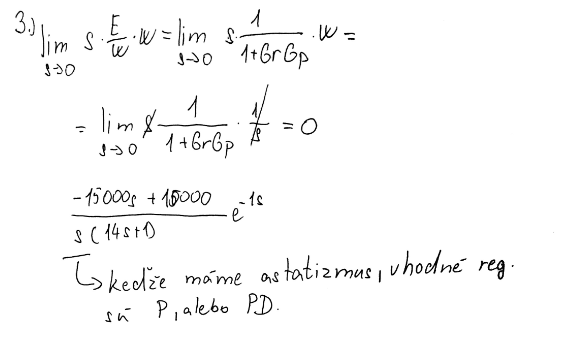 3.) lim s→0 s · E/W · W = lim s→0 s · 1/(1+GrGp) · W =
= lim s→0 s · 1/(1+GrGp) · 1/s = 0
(-15000s + 10000)/(s(14s+1)) e^-1s
↳ keďže máme astatizmus, vhodné reg.
sú P, alebo PD.